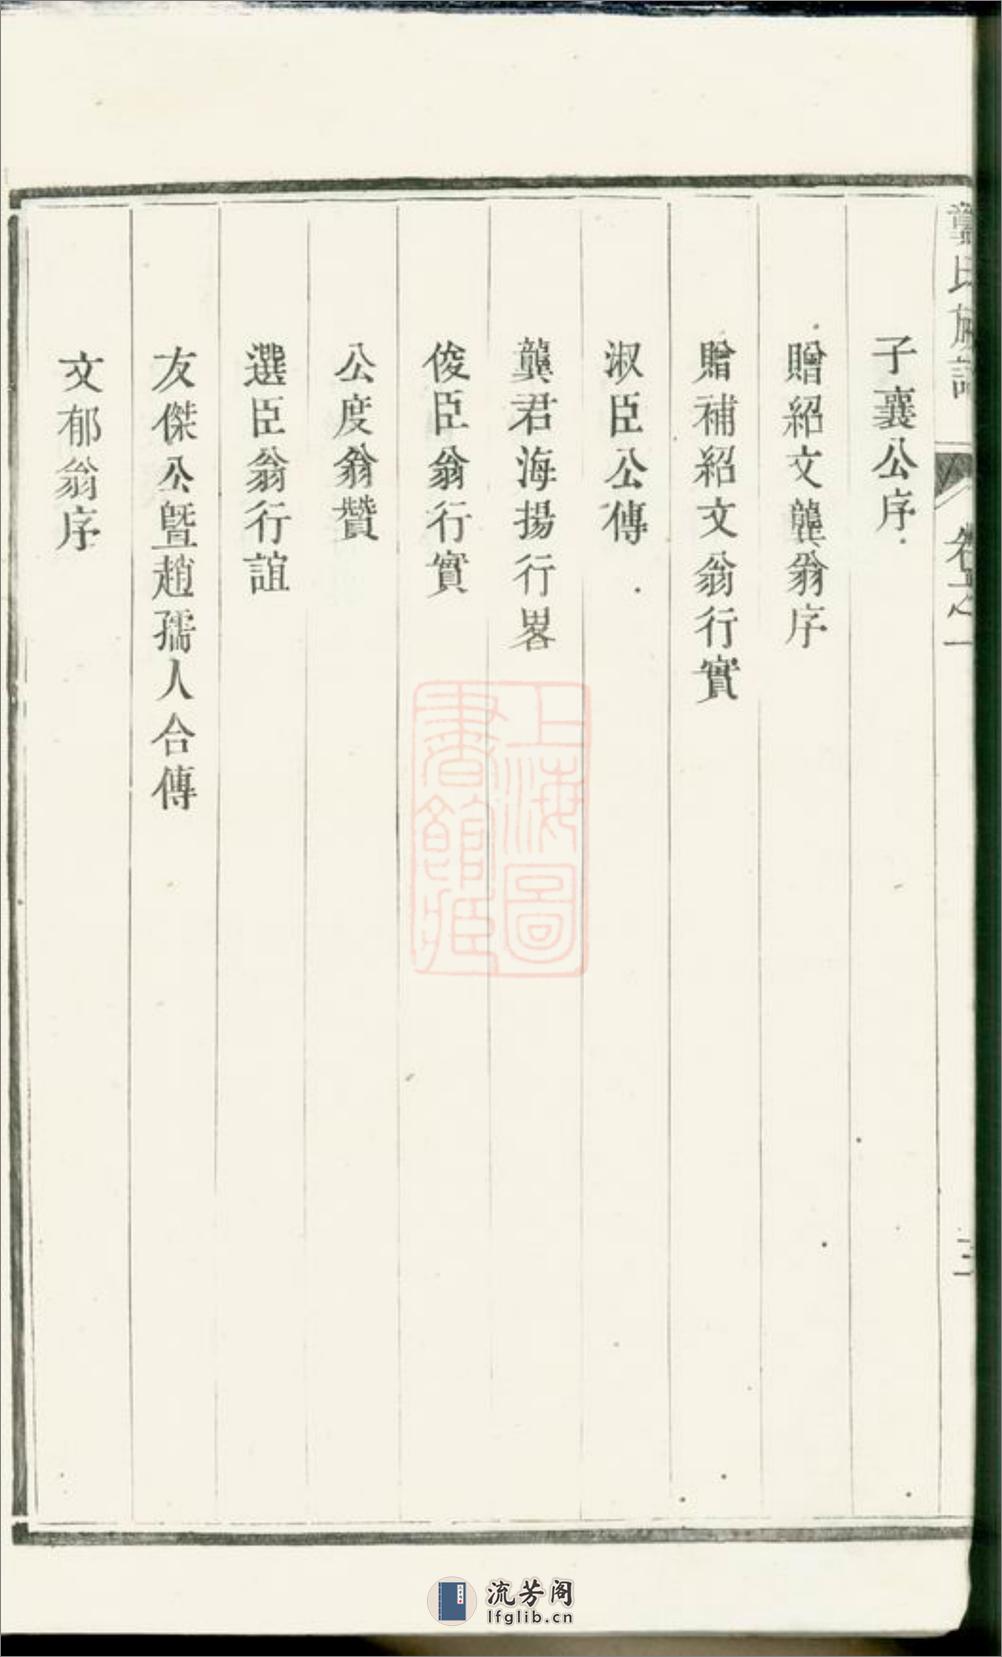 龔氏族譜
卷之一
三
子襄公序
贈紹文龔翁序
贈補紹文翁行實
淑臣公傳
龔君海揚行畧
俊臣翁行實
公度翁贊
選臣翁行誼
友傑公暨趙孺人合傳
文郁翁序
上海圖
書館藏
流芳阁
lfglib.cn